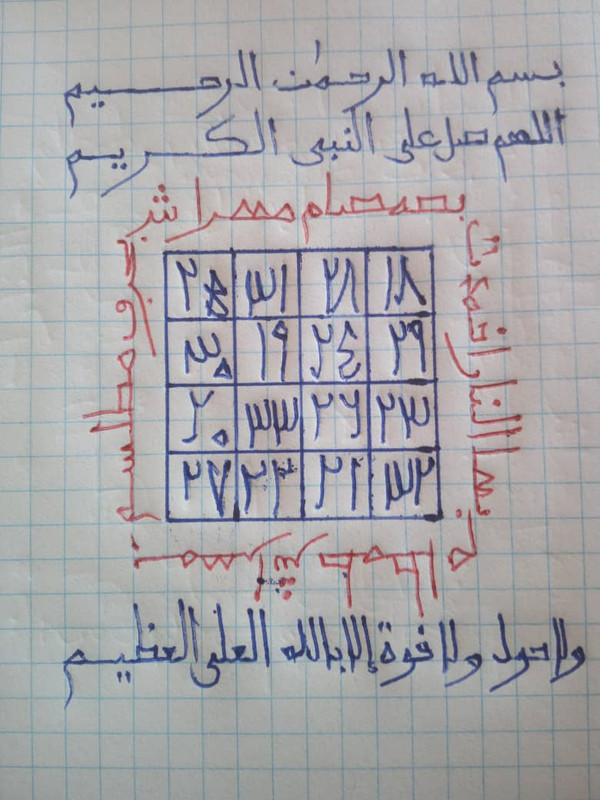 بسم الله الرحمٰن الرحيم
اللهم صل على النبي الكريم
بصمصام مهراش
بها النار اخمدت
١٨ ٢٨ ٣١ ٢٥
٢٩ ٢٤ ١٩ ٣٠
٢٣ ٢٦ ٣٣ ٢٠
٣٢ ٢١ ٢٢ ٢٧
ولا حول ولا قوة إلا بالله العلي العظيم